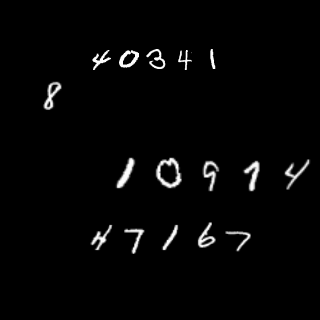 40341
8
10974
47167